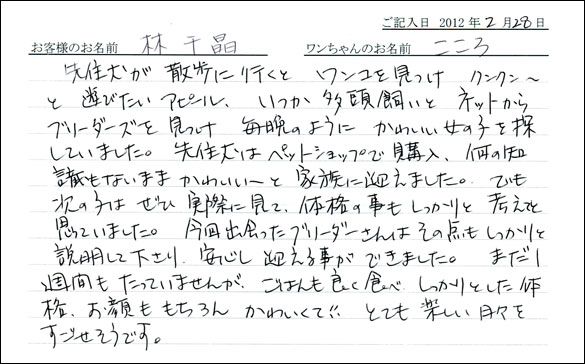 ご記入日 2012年2月28日
お客様のお名前 林 千晶 ワンちゃんのお名前 こころ
先住犬が 散歩に行くと ワンコを見つけ クンクン〜
と 遊びたい アピール、いつか 多頭飼いと ネットから
ブリーダーズを 見つけ 毎晩のように かわいい女の子を探
していました。先住犬はペットショップで購入、何の知
識もないまま かわいい〜と 家族に迎えました。でも
次の子は ぜひ 実際に見て、体格の事もしっかりと 考えてと
思っていました。今回出会ったブリーダーさんはその点もしっかりと
説明して下さり、安心し 迎える事が できました。まだ1
週間も たっていませんが、ごはんも良く食べ、しっかりとした体
格、お顔も もちろん かわいくて!! とても 楽しい 日々を
すごせそうです。